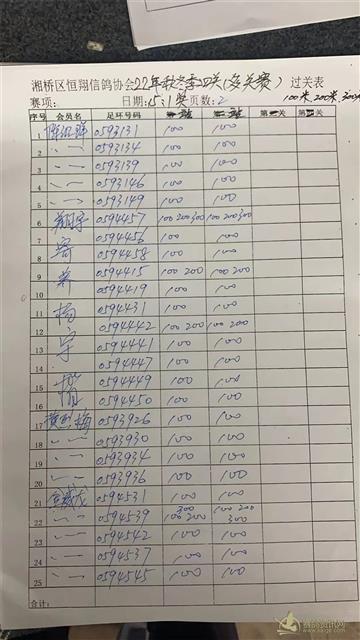 湘桥区恒翔信鸽协会22年秋冬季四关(多关赛)过关表
赛项: 日期:15:1奖 页数:2 100米 200米 300米
序号 会员名 足环号码 一站 二站 第三关 第四关
1 0593131 100 100
2 〃 0593134 100 100
3 〃 0593139 100 100
4 〃 0593146 100 100
5 〃 0593149 100 100
6 0594457 100 200 300 100 200 300
7 0594456 100 100
8 0594458 100 100
9 0594415 100 200 100 200
10 0594419 100 100
11 杨 0594431 100 100
12 0594442 100 200 100 200
13 宇 0594441 100 100
14 0594447 100 100
15 0594449 100 100
16 0594450 100 100
17 0593926 100 100
18 〃 0593930 100 100
19 〃 0593934 100 100
20 〃 0593936 100 100
21 0594531 100 100
22 〃 0594539 100 200 300 100 200 300
23 〃 0594542 100 100
24 〃 0594537 100 100
25 〃 0594545 100 100
合计:
赛鸽资讯网
www.saige.com